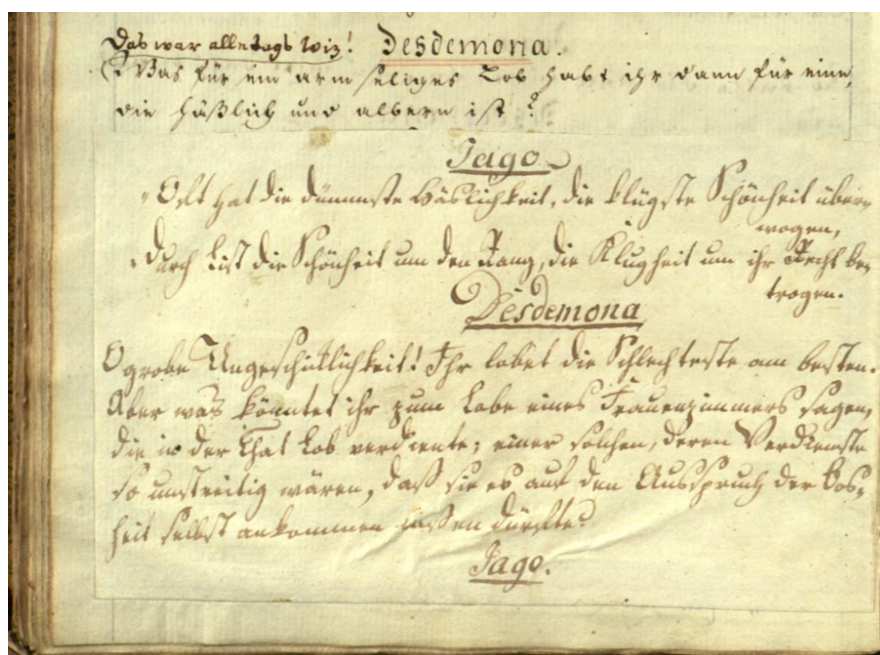 Das war alletags Wiz! Desdemona.
Was für ein armseliges Lob habt ihr dann für eine,
die häßlich und albern ist?
Jago
"Oft hat die dümmste Häslichkeit, die klügste Schönheit über-
wogen,
"Durch List die Schönheit um den Rang, die Klugheit um ihr Recht be-
trogen.
Desdemona
O grobe Ungeschicklichkeit! Ihr lobet die Schlechteste am besten.
Aber was könntet ihr zum Lobe eines Frauenzimmers sagen,
die in der That Lob verdiente; einer solchen, deren Verdienste
so unstreitig wären, daß sie es auf den Ausspruch der Bos-
heit selbst ankommen laßen dürfte?
Jago.